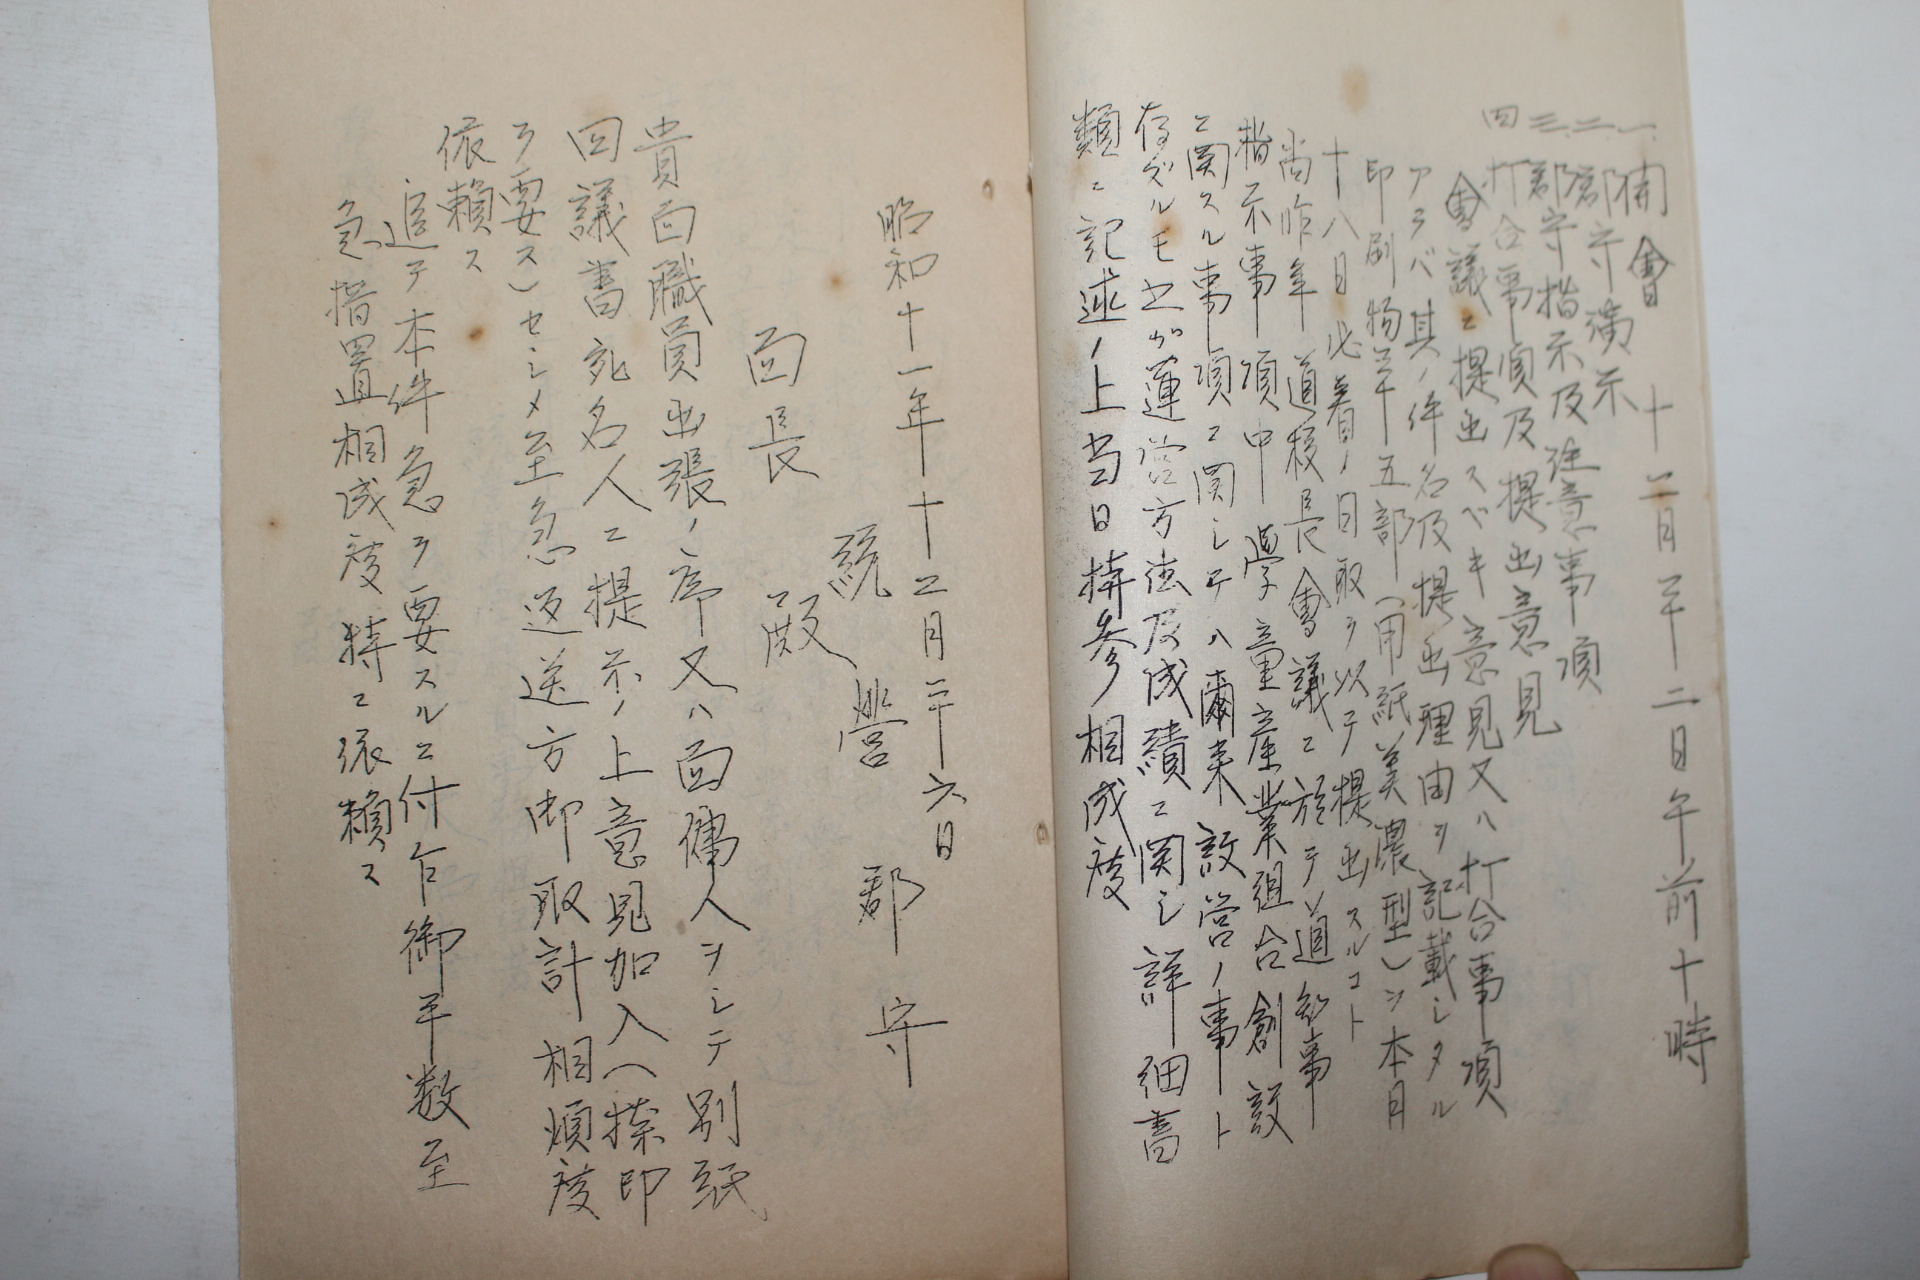 一、開會　十二月二十二日午前十時
二、郡守演示
三、郡守指示及注意事項
四　打合事項及提出意見
會議ニ提出スベキ意見又ハ打合事項
アラバ其ノ件名及提出理由ヲ記載シタル
印刷物二十五部（用紙美濃型）ヲ本月
十八日必着ノ日取ヲ以テ提出スルコト
尚昨年道校長會議ニ於テ道知事
指示事項中學童産業組合創設
ニ関スル事項ニ関シテハ爾来設営ノ事ト
存ズルモ之ガ運営方法及成績ニ関シ詳細書
類ニ記述ノ上当日持参相成度
昭和十一年十二月二十六日
統營郡守
面長殿
貴面職員出張ノ序又ハ面傭人ヲシテ別紙
回議書宛名人ニ提示ノ上意見加入（捺印
ヲ要ス）セシメ至急返送方御取計相煩度
依頼ス
追テ本件急ヲ要スルニ付乍御手数至
急措置相成度特ニ依頼ス